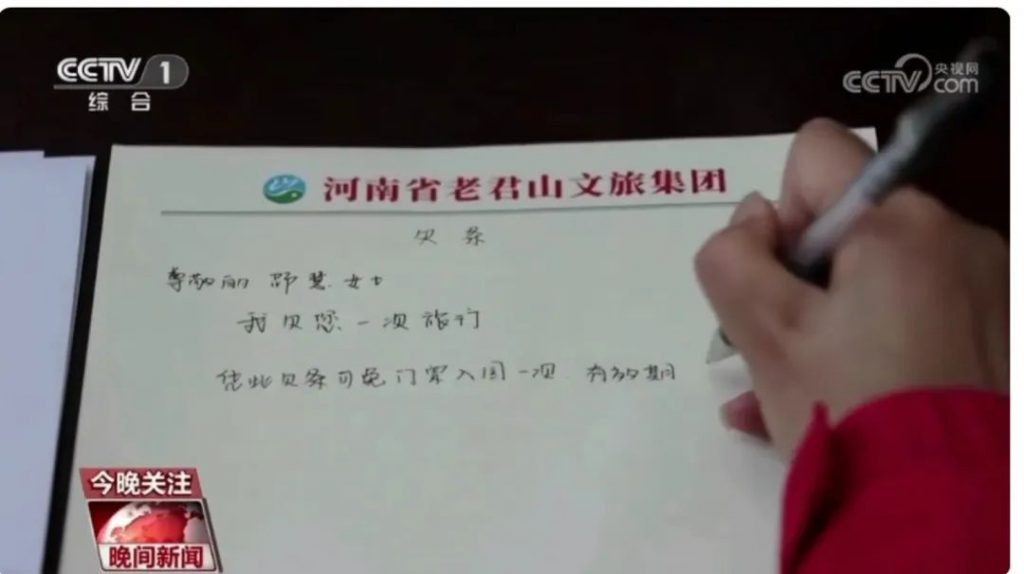 CCTV 1
综合
央视网
CCTV com
河南省老君山文旅集团
欠条
尊敬的 邵慧 女士
我欠您一次旅行
凭此欠条可免门票入园一次 有效期
今晚关注
晚间新闻